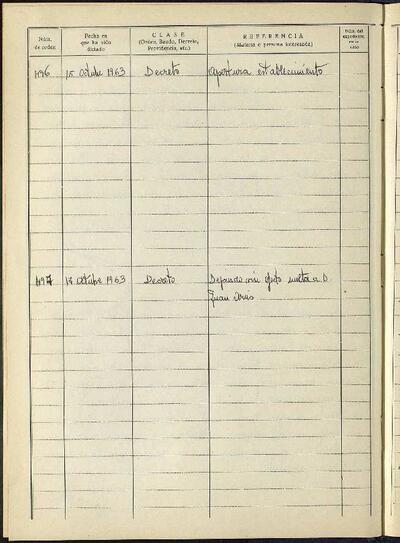 Núm. de orden
Fecha en que ha sido dictado
CLASE
(Orden, Bando, Decreto, Providencia, etc.)
REFERENCIA
(Materia o persona interesada)
Núm. del expediente
496 15 Octubre 1963 Decreto Apertura establecimiento
497 17 Octubre 1963 Decreto Dejando sin efto multa a D.
Juan